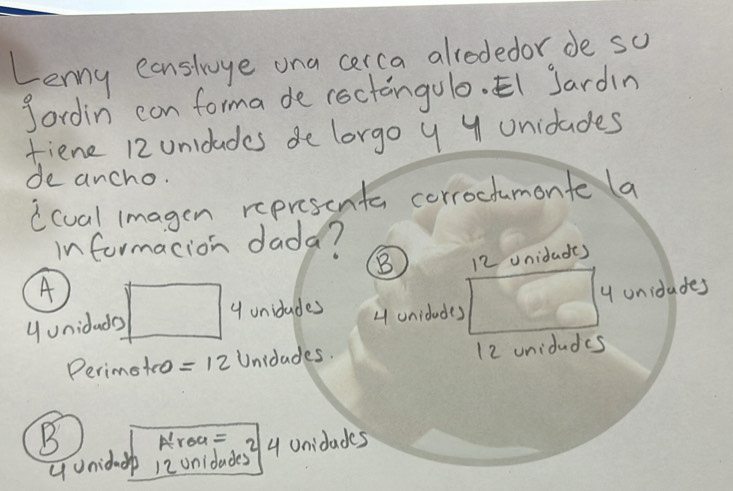 Lenny construye una cerca alrededor de su
jardin con forma de rectángulo. El jardin
tiene 12 unidades de largo y 4 unidades
de ancho.
¿cual imagen representa correctamente la
información dada?
A
4 unidades 4 unidades
Perimetro = 12 Unidades.
B
12 unidades
4 unidades 4 unidades
12 unidades
B
Área =
4 unidades 12 unidades² 4 unidades